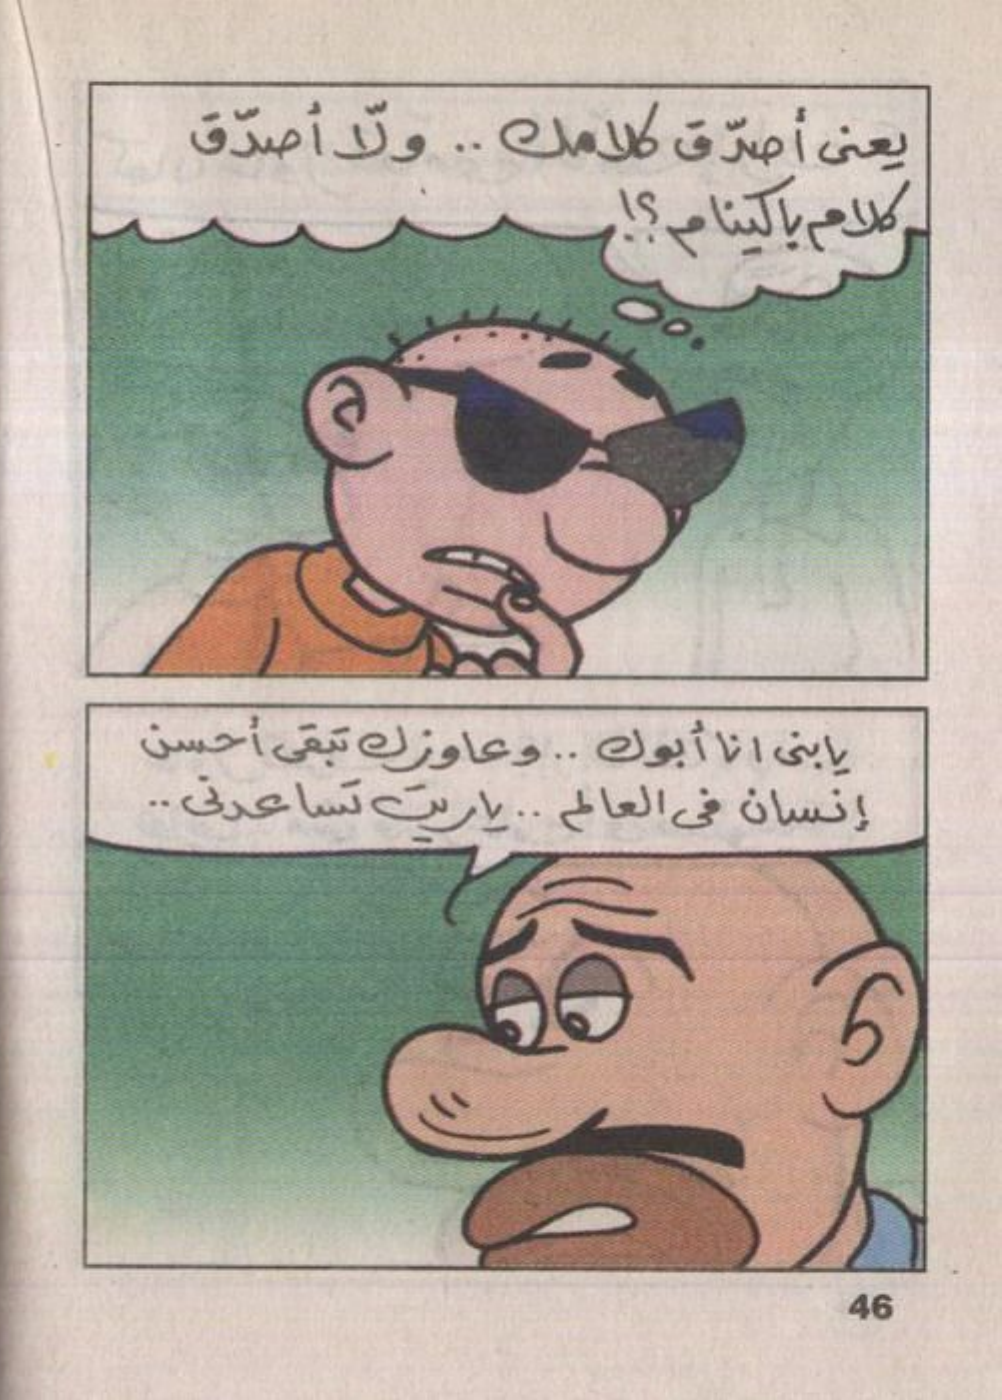 يعنى أصدّق كلامك .. ولّا أصدّق
كلام باكينام ؟!
يابنى انا أبوك .. وعاوزك تبقى أحسن
إنسان فى العالم .. ياريت تساعدنى ..
46